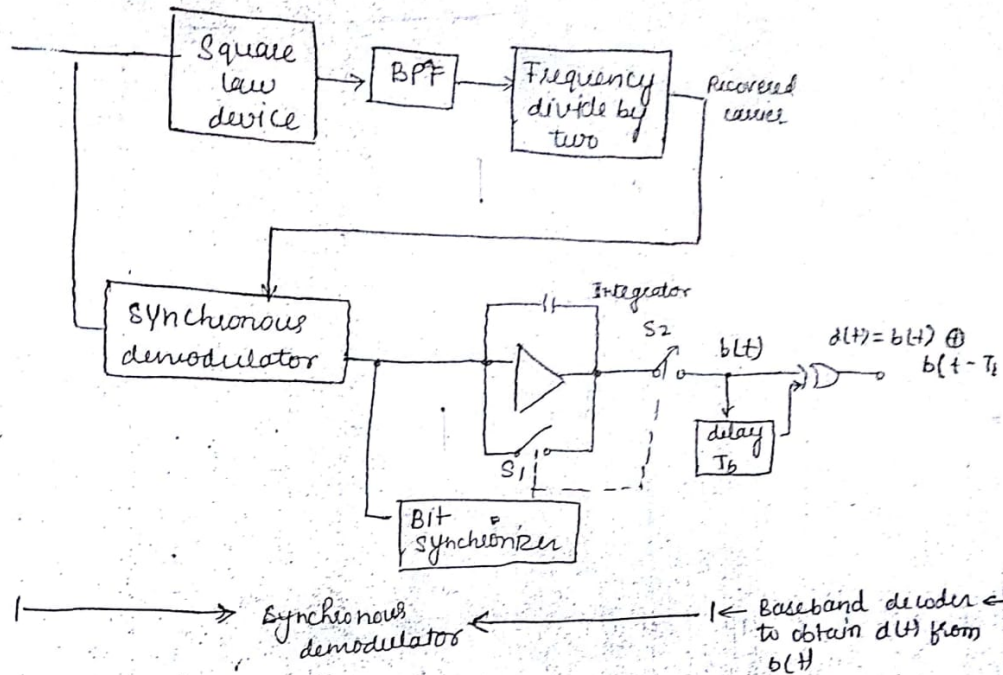 Square
law
device
BPF
Frequency
divide by
two
Recovered
carrier
Synchronous
demodulator
Integrator
S2
b(t)
d(t) = b(t) ⊕
b(t - T
delay
Tb
S1
Bit
synchronizer
Synchronous
demodulator
Baseband decoder
to obtain d(t) from
b(t)